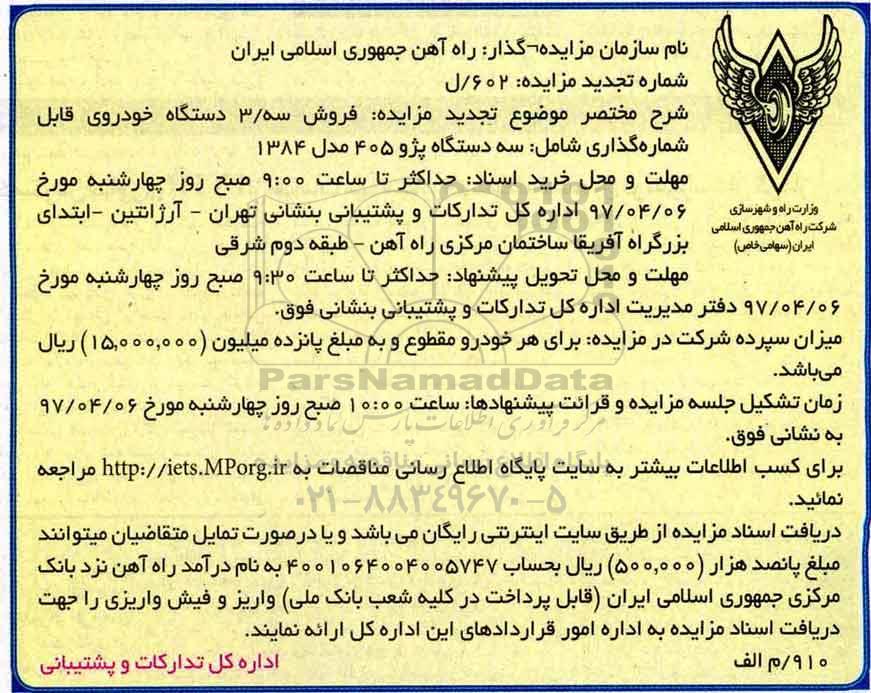 نام سازمان مزایده¬گذار: راه آهن جمهوری اسلامی ایران
شماره تجدید مزایده: ۶۰۲/ل
شرح مختصر موضوع تجدید مزایده: فروش سه/۳ دستگاه خودروی قابل
شماره‌گذاری شامل: سه دستگاه پژو ۴۰۵ مدل ۱۳۸۴
مهلت و محل خرید اسناد: حداکثر تا ساعت ۹:۰۰ صبح روز چهارشنبه مورخ
۹۷/۰۴/۰۶ اداره کل تدارکات و پشتیبانی بنشانی تهران - آرژانتین -ابتدای
بزرگراه آفریقا ساختمان مرکزی راه آهن - طبقه دوم شرقی
مهلت و محل تحویل پیشنهاد: حداکثر تا ساعت ۹:۳۰ صبح روز چهارشنبه مورخ
۹۷/۰۴/۰۶ دفتر مدیریت اداره کل تدارکات و پشتیبانی بنشانی فوق.
میزان سپرده شرکت در مزایده: برای هر خودرو مقطوع و به مبلغ پانزده میلیون (۱۵,۰۰۰,۰۰۰) ریال
می‌باشد.
زمان تشکیل جلسه مزایده و قرائت پیشنهادها: ساعت ۱۰:۰۰ صبح روز چهارشنبه مورخ ۹۷/۰۴/۰۶
به نشانی فوق.
برای کسب اطلاعات بیشتر به سایت پایگاه اطلاع رسانی مناقصات به http://iets.MPorg.ir مراجعه
نمائید.
دریافت اسناد مزایده از طریق سایت اینترنتی رایگان می باشد و یا درصورت تمایل متقاضیان میتوانند
مبلغ پانصد هزار (۵۰۰,۰۰۰) ریال بحساب ۴۰۰۱۰۶۴۰۰۴۰۰۵۷۴۷ به نام درآمد راه آهن نزد بانک
مرکزی جمهوری اسلامی ایران (قابل پرداخت در کلیه شعب بانک ملی) واریز و فیش واریزی را جهت
دریافت اسناد مزایده به اداره امور قراردادهای این اداره کل ارائه نمایند.
۹۱۰/م الف
اداره کل تدارکات و پشتیبانی
وزارت راه و شهرسازی
شرکت راه آهن جمهوری اسلامی
ایران (سهامی خاص)
ParsNamadData
مرکز فرآوری اطلاعات پارس نماد داده ها
پایگاه اطلاع رسانی مناقصه و مزایده
۰۲۱-۸۸۳۴۹۶۷۰-۵